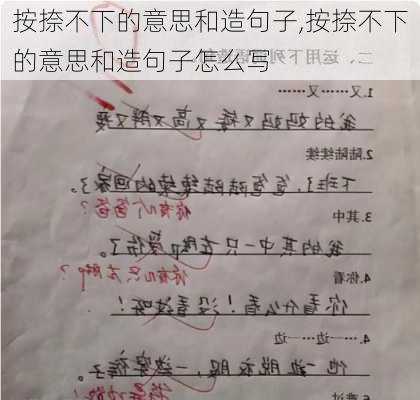 按捺不下的意思和造句子,按捺不下
的意思和造句子怎么写
二、运用下列词语造句
1.又……又……
我的妈妈又矮又高又胖又瘦
2.陆陆续续
下班了，爸爸陆陆续续的回家了。
你有几个爸爸？
3.其中
我的其中一只左脚受伤了。
你有几只左脚？
4.你看
你看什么看！没看过呀！
4.一边……一边……
他一边脱衣服，一边穿裤子。